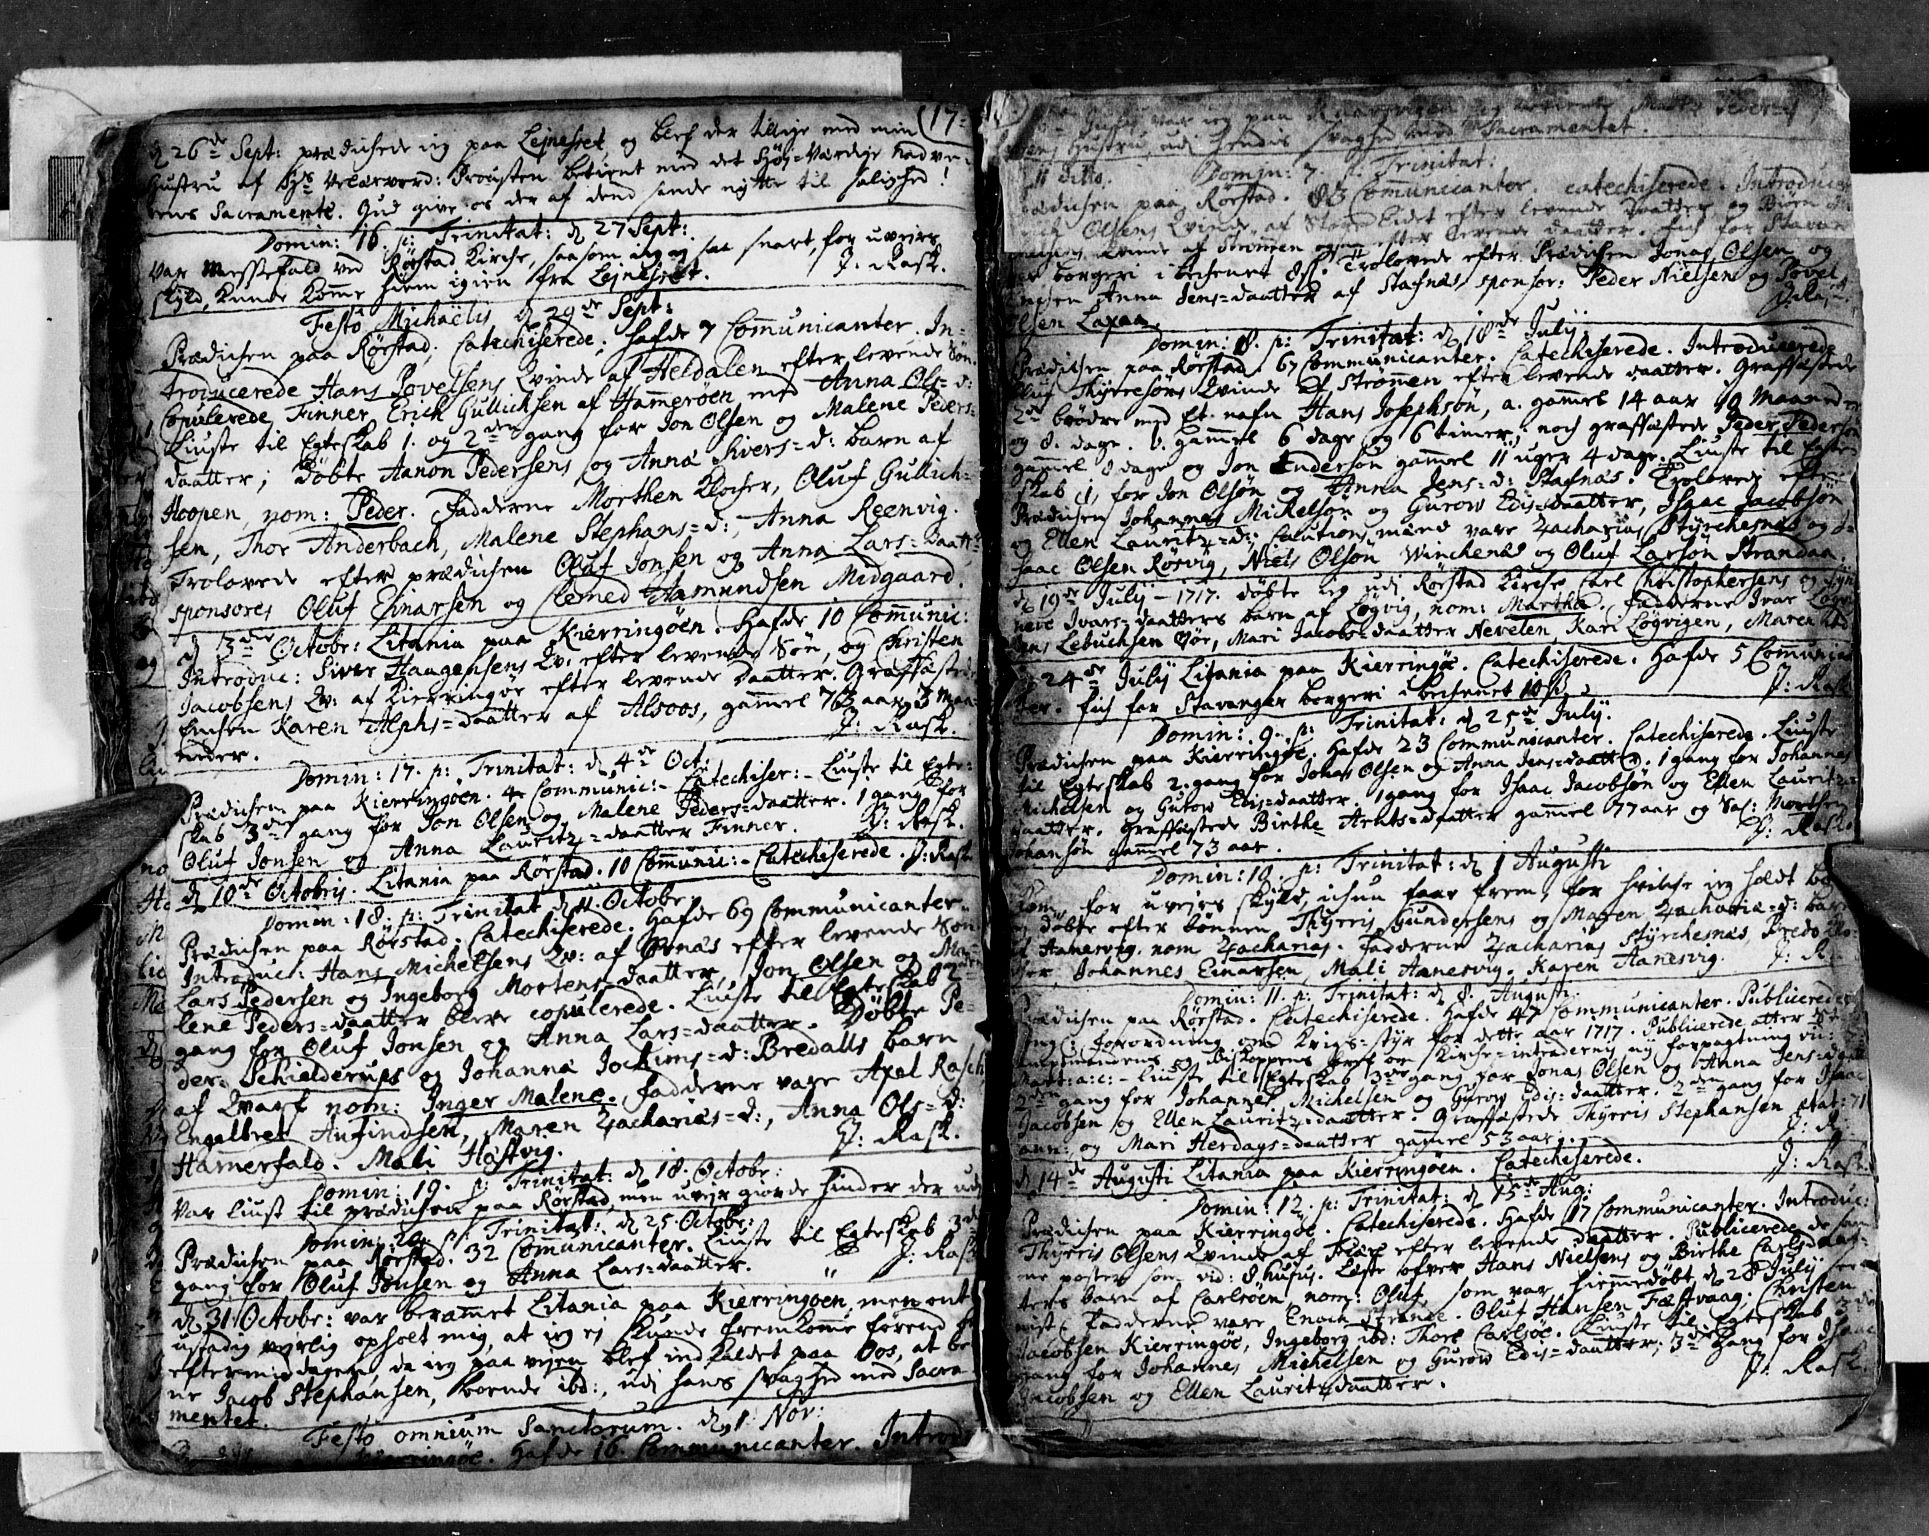 (17
d 26de Sept: prædichede ieg paa Lejnesset og blef der tillige med min
Hustru af Hr. Velærværd: Prousten betient med det Høj-Værdige Nadve-
rens Sacramente. Gud give os der af dend sande nytte til salighed!
Domin: 16. p: Trinitat: d 27 Sept:
Var Messefald ved Rørstad Kirche, saasom ieg ej saa snart, for uveirs
skyld, kunde komme hiem igien fra Lejnesset. J: Rask.
Festo Michaelis d 29de Sept:
Prædichen paa Rørstad. Catechiserede. Hafde 7 Communicanter. In-
troducerede Hans Povelsens Qvinde af Heldalen efter levende Søn.
Copulerede Finner, Erich Gullichsen af Hammerøen med Anna Ols=d:
Liuste til Egteskab 1. og 2den gang for Jon Olsen og Malene Peders=
daatter; Døbte Aanon Pedersens og Anna Sivers=d: barn af
Hoopen, nom: Peder. Fadderne Morthen Klocher, Oluf Gullich-
sen, Thor Anderbach, Malene Stephans=d:, Anna Reenvig.
Trolovede efter prædichen Oluf Jonsen og Anna Lars=daatt:
sponsores Oluf Einarsen og Clemed Hamundsen Midgaard.
d 3die Octobr: Litania paa Kierringøen. Hafde 10 Communic:
Introduc: Siver Haagensens Qv: efter levende Søn, og Christen
Jacobsens Qv: af Kierringøe efter levende Daatter. Graffæstede
Enchen Karen Alphs=daatter af Alsoos, gammel 76 aar 3 Maa-
neder. J: Rask.
Domin: 17. p: Trinitat: d 4de Oct:
Prædichen paa Kierringøen. 4 Communic:- Catechiser:- Liuste til Egte-
skab 3die gang for Jon Olsen og Malene Peders=daatter. 1 gang for
Oluf Jonsen og Anna Lauritz=daatter Finner. J: Rask.
d 10de Octobris. Litania paa Rørstad. 10 Communic:- Catechiserede. J: Rask
Domin: 18. p: Trinitat d 11. Octobr
Prædichen paa Rørstad. Catechiserede. Hafde 69 Communicanter.
Introduc: Hans Michelsens Qv: af efter levende Søn.
Lars Pedersen og Ingeborg Mortens=daatter, Jon Olsen og Ma-
lene Peders=daatter bleve copulerede. Liuste til Egteskab 2den
gang for Oluf Jonsen og Anna Lars=daatter. Døbte Pe-
der Schielderups og Johanna Jochims=d: Bredalls barn
af Qvarf nom: Inger Malene. Fadderne vare Axel Rasch
Engelbret Anfindsen, Maren Zacharias=d:, Anna Ols=d:
Hamerfald. Mali Hostvig. J: Rask.
Domin: 19. p: Trinitat: d 18. Octobr:
Var liust til prædichen paa Rørstad, men uvejr giorde hinder der udj
Domin: 20 p: Trinitat: d 25 Octobr:
Prædichen paa Rørstad. 32 Communicanter. Liuste til Egteskab 3die
gang for Oluf Jonsen og Anna Lars=daatter. J: Rask
d 31 Octobr: var berammet Litania paa Kierringøen, men ont
ustadig vejrlig opholt mig, at ieg ej kunde fremkomme førend
eftermiddagen, da ieg paa vejen blef indkaldet paa Oos, at be
ne Jacob Stephansen, boende ibd:, udj hans svaghed med Sacra-
mentet.
Festo omnium Sanctorum. d 1 Nov:
Kierringøe. Hafde 16. Communicanter. Introd:
July var ieg paa Peders
Hustru udj hendis svaghed med Sacramentet.
11 dito. Domin: 7. p. Trinitat:
Prædichen paa Rørstad. 83 Communicanter. catechiserede. Introduce
Olsens Qvinde af Store Eidet efter levende Daatter, og Biørn
Qvinde af Strømen efter levende daatter. fich for Stavan
ger borgeri i bechenet 8 ß. Trolovede efter Prædichen Jonas Olsen og
Anna Jens=daatter af Stafnæs sponsor: Peder Nielsen og Povel
Olsen Laxaa. J: Rask.
Domin: 8. p: Trinitat: d 18de July.
Prædichen paa Rørstad. 67 Communicanter. Catechiserede. Introducerede
Oluf Thyrresøns Qvinde af Strømen efter levende daatter. Graffæstede
2de brødre med Et nafn Hans Josephsøn, a. gammel 14 aar 10 Maaneder
og 8. dage. b. gammel 6 dage og 6 timer. noch graffæstede Peder Pedersøn
gammel 8 dage og Jon Andersøn gammel 11 uger 4 dage. Liuste til Egte-
skab 1, for Jon Olsøn og Anna Jens=d: Stafnæs. Trolovede efter
Prædichen Johannes Mickelsøn og Gurow Edis=daatter, Isaac Jacobsøn
og Ellen Lauritz=d: Cautions mænd vare Zacharias Styrchesnæs og I-
saac Olsen Røsvig, Niels Olsøn Winchenæs og Oluf Larsøn Strandaa.
d 19de July 1717. døbte ieg udj Rørstad Kirche Carl Christophersens og Syn-
neve Ivars=daatters barn af Løgvig, nom: Martha. Fadderne Ivar Løgvi
Jens Lebuchsen Vør, Mari Jacobs=daatter Nevelen, Kari Løgvigen, Maren
24de July Litania paa Kierringøe. Catechiserede. Hafde 5 Comunican
ter. fich for Stavanger borgeri i bechenet 10 ß. J: Rask
Domin: 9. p: Trinitat: d 25de July.
Prædichen paa Kierringøe. Hafde 23 Communicanter. Catechiserede. Liuste
til Egteskab 2. gang for Jonas Olsen og Anna Jens=daatter. 1 gang for Johannes
Michelsen og Gurow Edis=daatter. 1 gang for Isaac Jacobsøn og Ellen Lauritz=
daatter. Graffæstede Birthe Arhts=daatter gammel 77 aar og Sal: Morthen
Johansøn gammel 73 aar. J: Rask.
Domin: 10. p: Trinitat: d 1 Augusti
Kom, for uveirs skyld, ichun faar frem, for hvilche ieg holdt bøn
og døbte efter bønnen Thyrris Gundersens og Maren Zachariæ=d: barn
af Aanesvig. nom Zacharias. Fadderne Zacharias Styrchesnæs, Predo Klo-
cher, Johannes Einarsen, Mali Aanesvig. Karen Aanesvig. J: R.
Domin: 11. p: Trinitat: d 8. Augusti.
Prædichen paa Rørstad. Catechiserede. Hafde 47 Communicanter. Publicerede
Forordning om Krigs=styr for dette aar 1717. Publicerede atter
og Biskoppens bref om Kirche=intradernis ny forpagtning
Matt: a:c:- liuste til Egteskab 3die gang for Jonas Olsen og Anna Jens=daatt
2den gang for Johannes Michelsen og Gurow Edis=daatter. 2den gang for Isaac
Jacobsen og Ellen Lauritz=daatter. Graffæstede Thyrris Stephansen ætat: 71
ann: og Mari Herdags=daatter gammel 53 aar. J: R
d 14de Augusti Litania paa Kierringøen. Catechiserede. J: Rask.
Domin: 12. p: Trinitat: d 15de Aug:
Prædichen paa Kierringøe. Catechiserede. Hafde 17 Communicanter. Introduc:
Thyrris Olsens Qvinde af efter levende daatter. Publicerede de sam
me poster som vid: 8. hujus. Læste ofver Hans Nielsens og Birthe Carlsdaat-
ters barn af Carlsøen, nom: Oluf, som var hiemmedøbt d 28 July.
Fadderne vare, Enoch Strance. Oluf Hansen Fæstvaag; Christen
Jacobsen Kierringøe, Ingeborg ibd: Thore Carlsøe. Liuste til Egteskab 3die
gang for Johannes Michelsen og Gurow Edis=daatter, 3die gang for Isaac
Jacobsen og Ellen Lauritzdaatter. J: Rask.